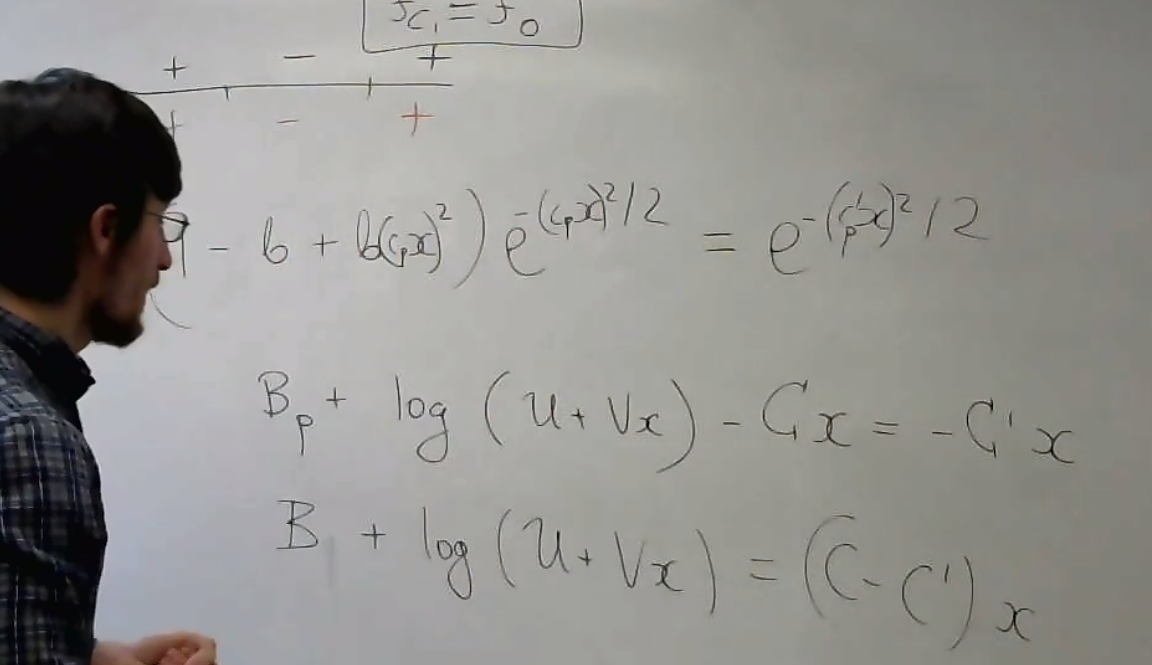 f_{C_1} = f_0
+ − +
+ − +
− b + b(c_p x)^2 ) e^{-(c_p x)^2/2} = e^{-(c'_p x)^2/2}
B_p + log (U + Vx) - Cx = -C'x
B + log (U + Vx) = (C - C')x